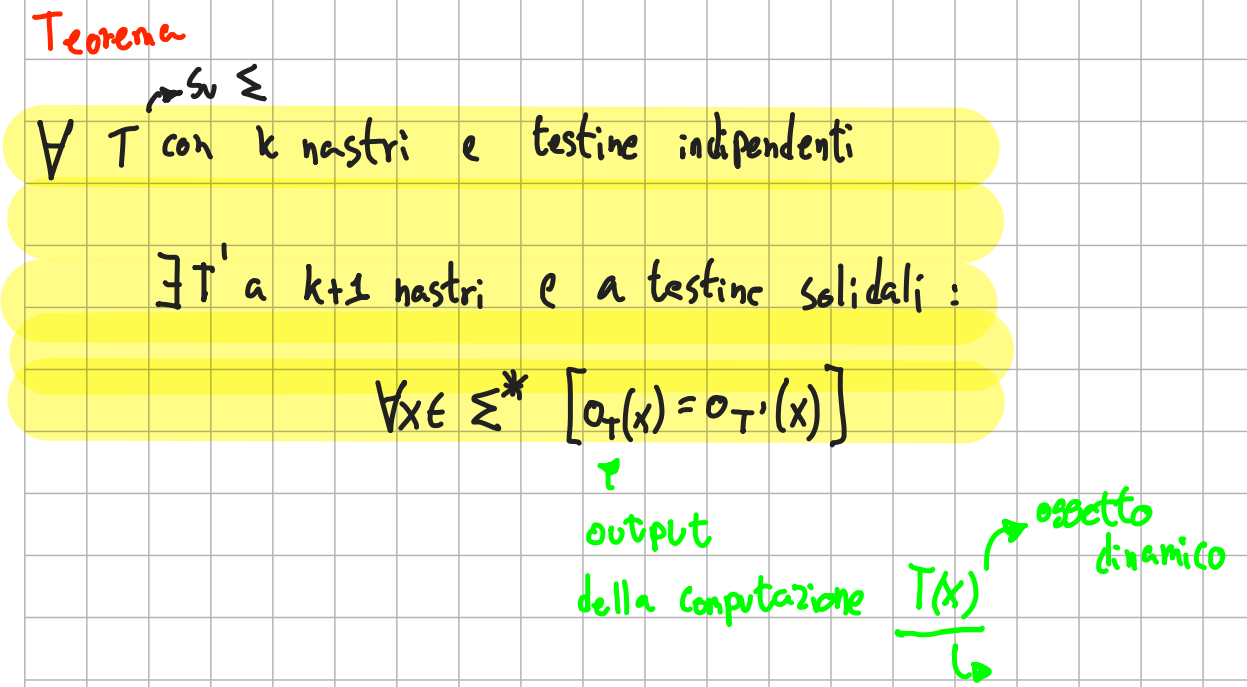 Teorema
su Σ
∀ T con k nastri e testine indipendenti
∃ T' a k+1 nastri e a testine solidali :
∀x ∈ Σ* [o_T(x) = o_T'(x)]
output
della computazione T(x)
oggetto
dinamico